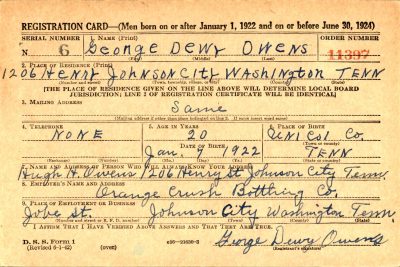 REGISTRATION CARD—(Men born on or after January 1, 1922 and on or before June 30, 1924)
SERIAL NUMBER 1. NAME (Print) ORDER NUMBER
N 6 George Dewy Owens 11397
(First) (Middle) (Last)
2. PLACE OF RESIDENCE (Print)
1206 Henry Johnson City Washington TENN
(Number and street) (Town, township, village, or city) (County) (State)
[THE PLACE OF RESIDENCE GIVEN ON THE LINE ABOVE WILL DETERMINE LOCAL BOARD
JURISDICTION; LINE 2 OF REGISTRATION CERTIFICATE WILL BE IDENTICAL]
3. MAILING ADDRESS
Same
(Mailing address if other than place indicated on line 2. If same insert word same)
4. TELEPHONE 5. AGE IN YEARS 6. PLACE OF BIRTH
NONE 20 UNICOI Co.
DATE OF BIRTH (Town or county)
Jan. 7 1922 TENN
(Exchange) (Number) (Mo.) (Day) (Yr.) (State or country)
7. NAME AND ADDRESS OF PERSON WHO WILL ALWAYS KNOW YOUR ADDRESS
Hugh H. Owens 1206 Henry St Johnson City Tenn.
8. EMPLOYER'S NAME AND ADDRESS
Orange Crush Bottling Co.
9. PLACE OF EMPLOYMENT OR BUSINESS
Jobe St. Johnson City Washington Tenn
(Number and street or R. F. D. number) (Town) (County) (State)
I AFFIRM THAT I HAVE VERIFIED ABOVE ANSWERS AND THAT THEY ARE TRUE.
D. S. S. Form 1
(Revised 6-1-42) (over) c16—21630-2 George Dewy Owens
(Registrant's signature)